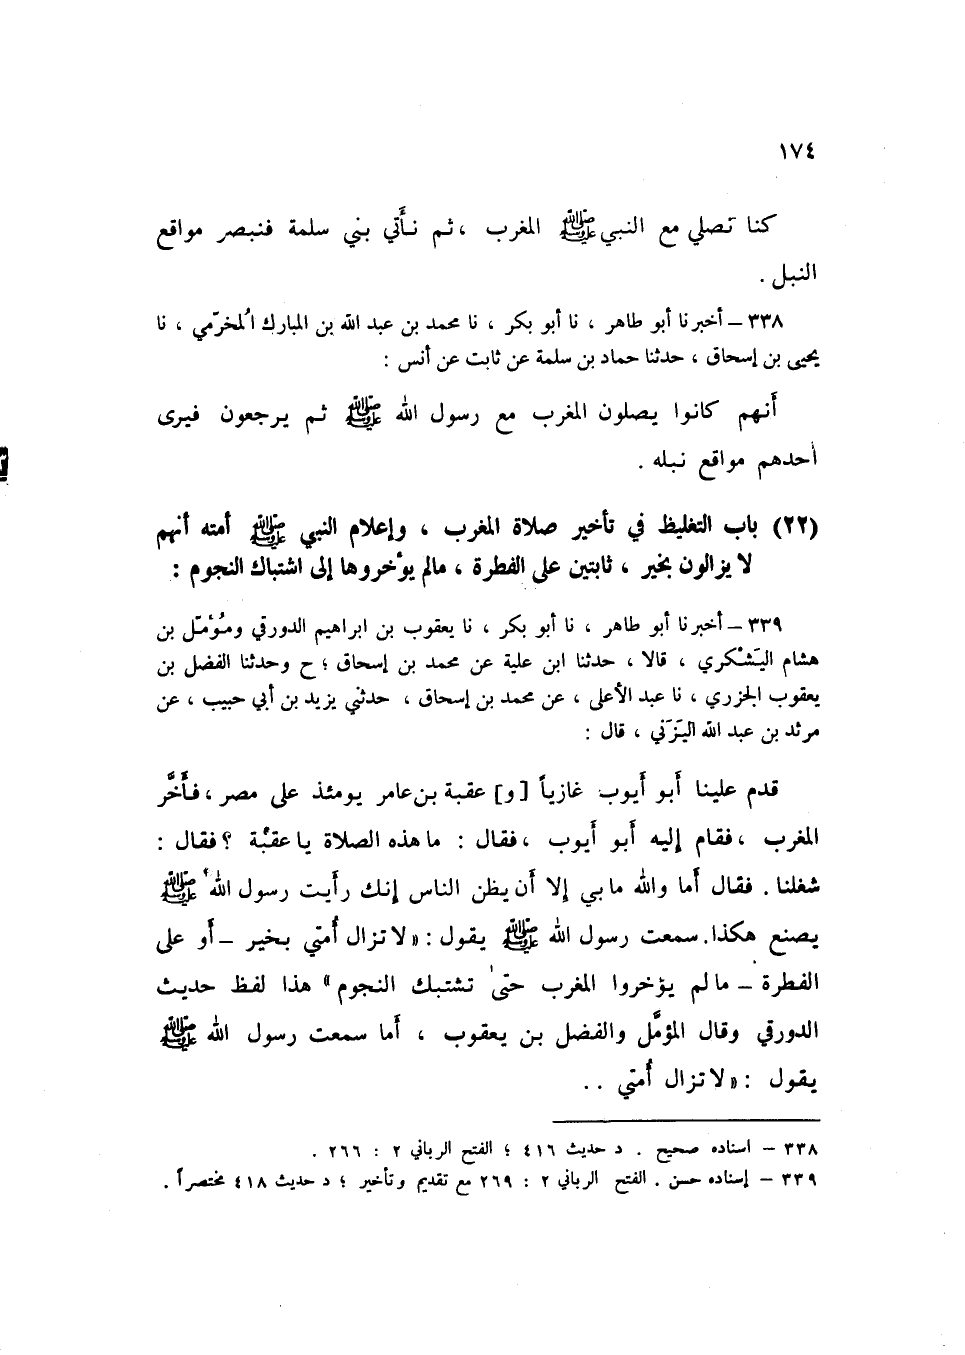 ١٧٤
كنا نصلي مع النبي ﷺ المغرب ، ثم نأتي بني سلمة فنبصر مواقع
النبل .
٣٣٨ – أخبرنا أبو طاهر ، نا أبو بكر ، نا محمد بن عبد الله بن المبارك المخرّمي ، نا
يحيى بن إسحاق ، حدثنا حماد بن سلمة عن ثابت عن أنس :
أنهم كانوا يصلون المغرب مع رسول الله ﷺ ثم يرجعون فيرى
أحدهم مواقع نبله .
(٢٢) باب التغليظ في تأخير صلاة المغرب ، وإعلام النبي ﷺ أمته أنهم
لا يزالون بخير ، ثابتين على الفطرة ، مالم يؤخروها إلى اشتباك النجوم :
٣٣٩ – أخبرنا أبو طاهر ، نا أبو بكر ، نا يعقوب بن ابراهيم الدورقي ومُؤمّل بن
هشام اليَشْكري ، قالا ، حدثنا ابن علية عن محمد بن إسحاق ؛ ح وحدثنا الفضل بن
يعقوب الجزري ، نا عبد الأعلى ، عن محمد بن إسحاق ، حدثني يزيد بن أبي حبيب ، عن
مرثد بن عبد الله اليَزَني ، قال :
قدم علينا أبو أيوب غازياً [و] عقبة بن عامر يومئذ على مصر ، فأَخَّر
المغرب ، فقام إليه أبو أيوب ، فقال : ما هذه الصلاة يا عقبة ؟ فقال :
شغلنا . فقال أما والله ما بي إلا أن يظن الناس إنك رأيت رسول الله ﷺ
يصنع هكذا . سمعت رسول الله ﷺ يقول : « لا تزال أُمتي بخير – أو على
الفطرة – ما لم يؤخروا المغرب حتى تشتبك النجوم » هذا لفظ حديث
الدورقي وقال المؤمَّل والفضل بن يعقوب ، أما سمعت رسول الله ﷺ
يقول : « لا تزال أُمتي . .
٣٣٨ – اسناده صحيح . د حديث ٤١٦ ؛ الفتح الرباني ٢ : ٢٦٦ .
٣٣٩ – إسناده حسن . الفتح الرباني ٢ : ٢٦٩ مع تقديم وتأخير ؛ د حديث ٤١٨ مختصراً .